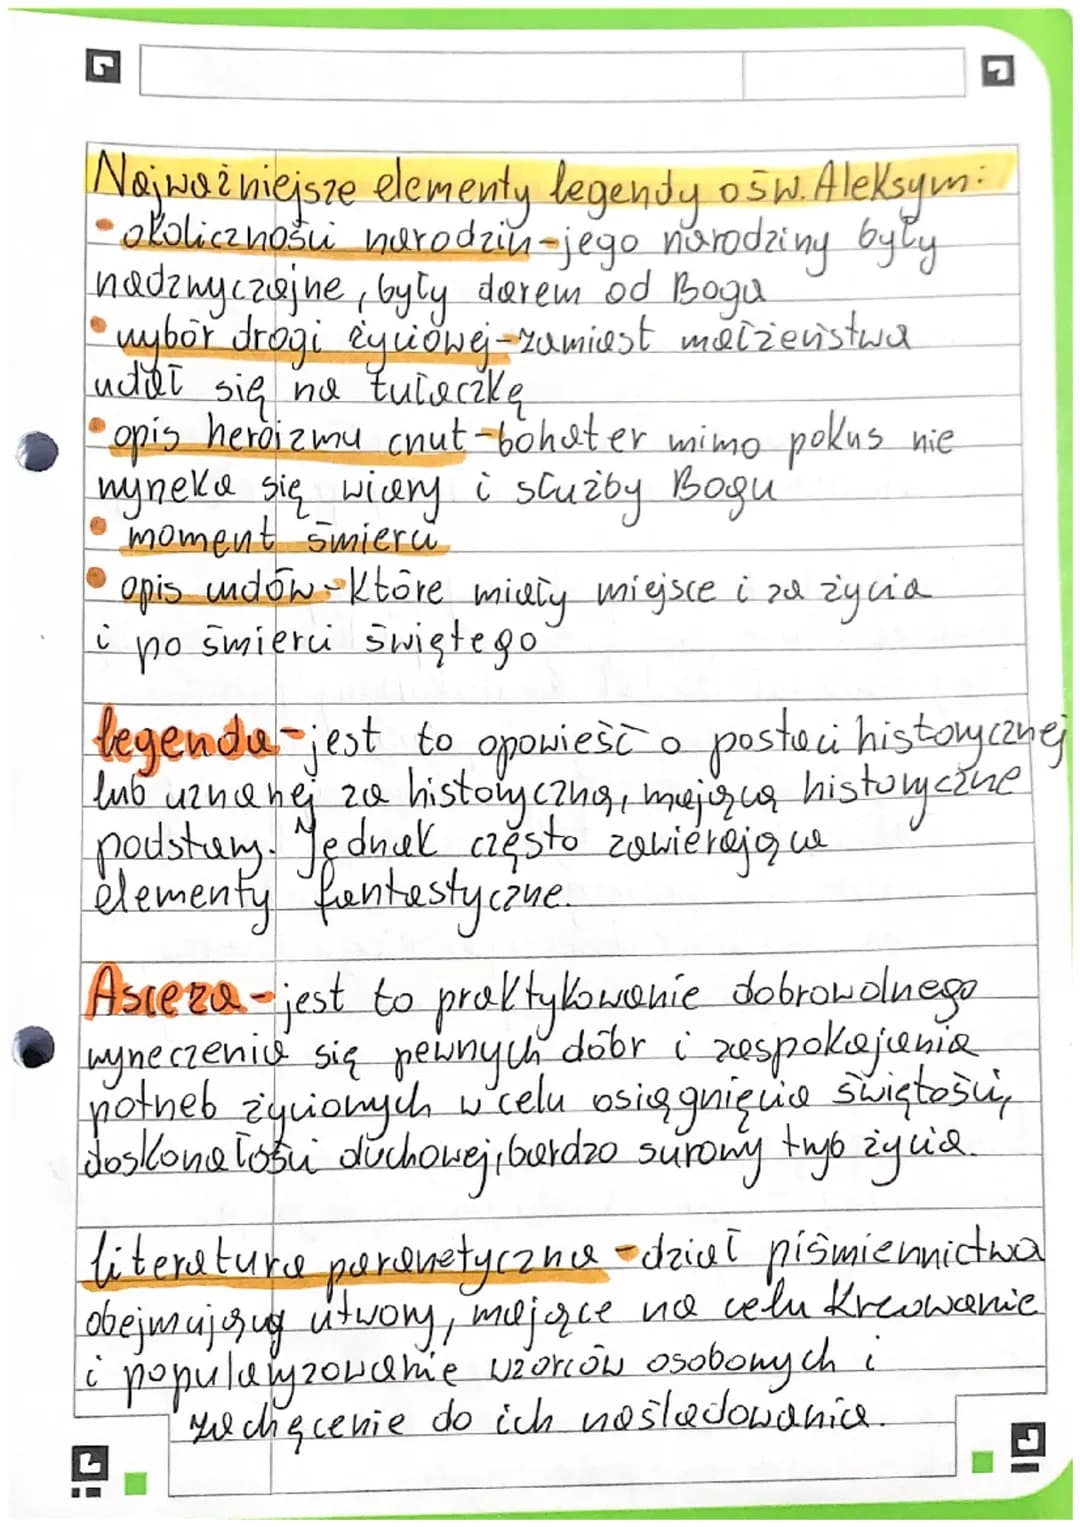 Najważniejsze elementy legendy o św. Aleksym:
• okoliczności narodzin - jego narodziny były
nadzwyczajne, były darem od Boga
• wybór drogi życiowej - zamiast małżeństwa
udał się na tułaczkę
• opis heroizmu cnót - bohater mimo pokus nie
wyrzeka się wiary i służby Bogu
• moment śmierci
• opis cudów - które miały miejsce i za życia
i po śmierci świętego
legenda - jest to opowieść o postaci historycznej
lub uznanej za historyczną, mającą historyczne
podstawy. Jednak często zawierająca
elementy fantastyczne.
Asceza - jest to praktykowanie dobrowolnego
wyrzeczenia się pewnych dóbr i zaspokajania
potrzeb życiowych w celu osiągnięcia świętości,
doskonałości duchowej, bardzo surowy tryb życia.
literatura parenetyczna - dział piśmiennictwa
obejmujący utwory, mające na celu kreowanie
i popularyzowanie wzorców osobowych i
zachęcenie do ich naśladowania.